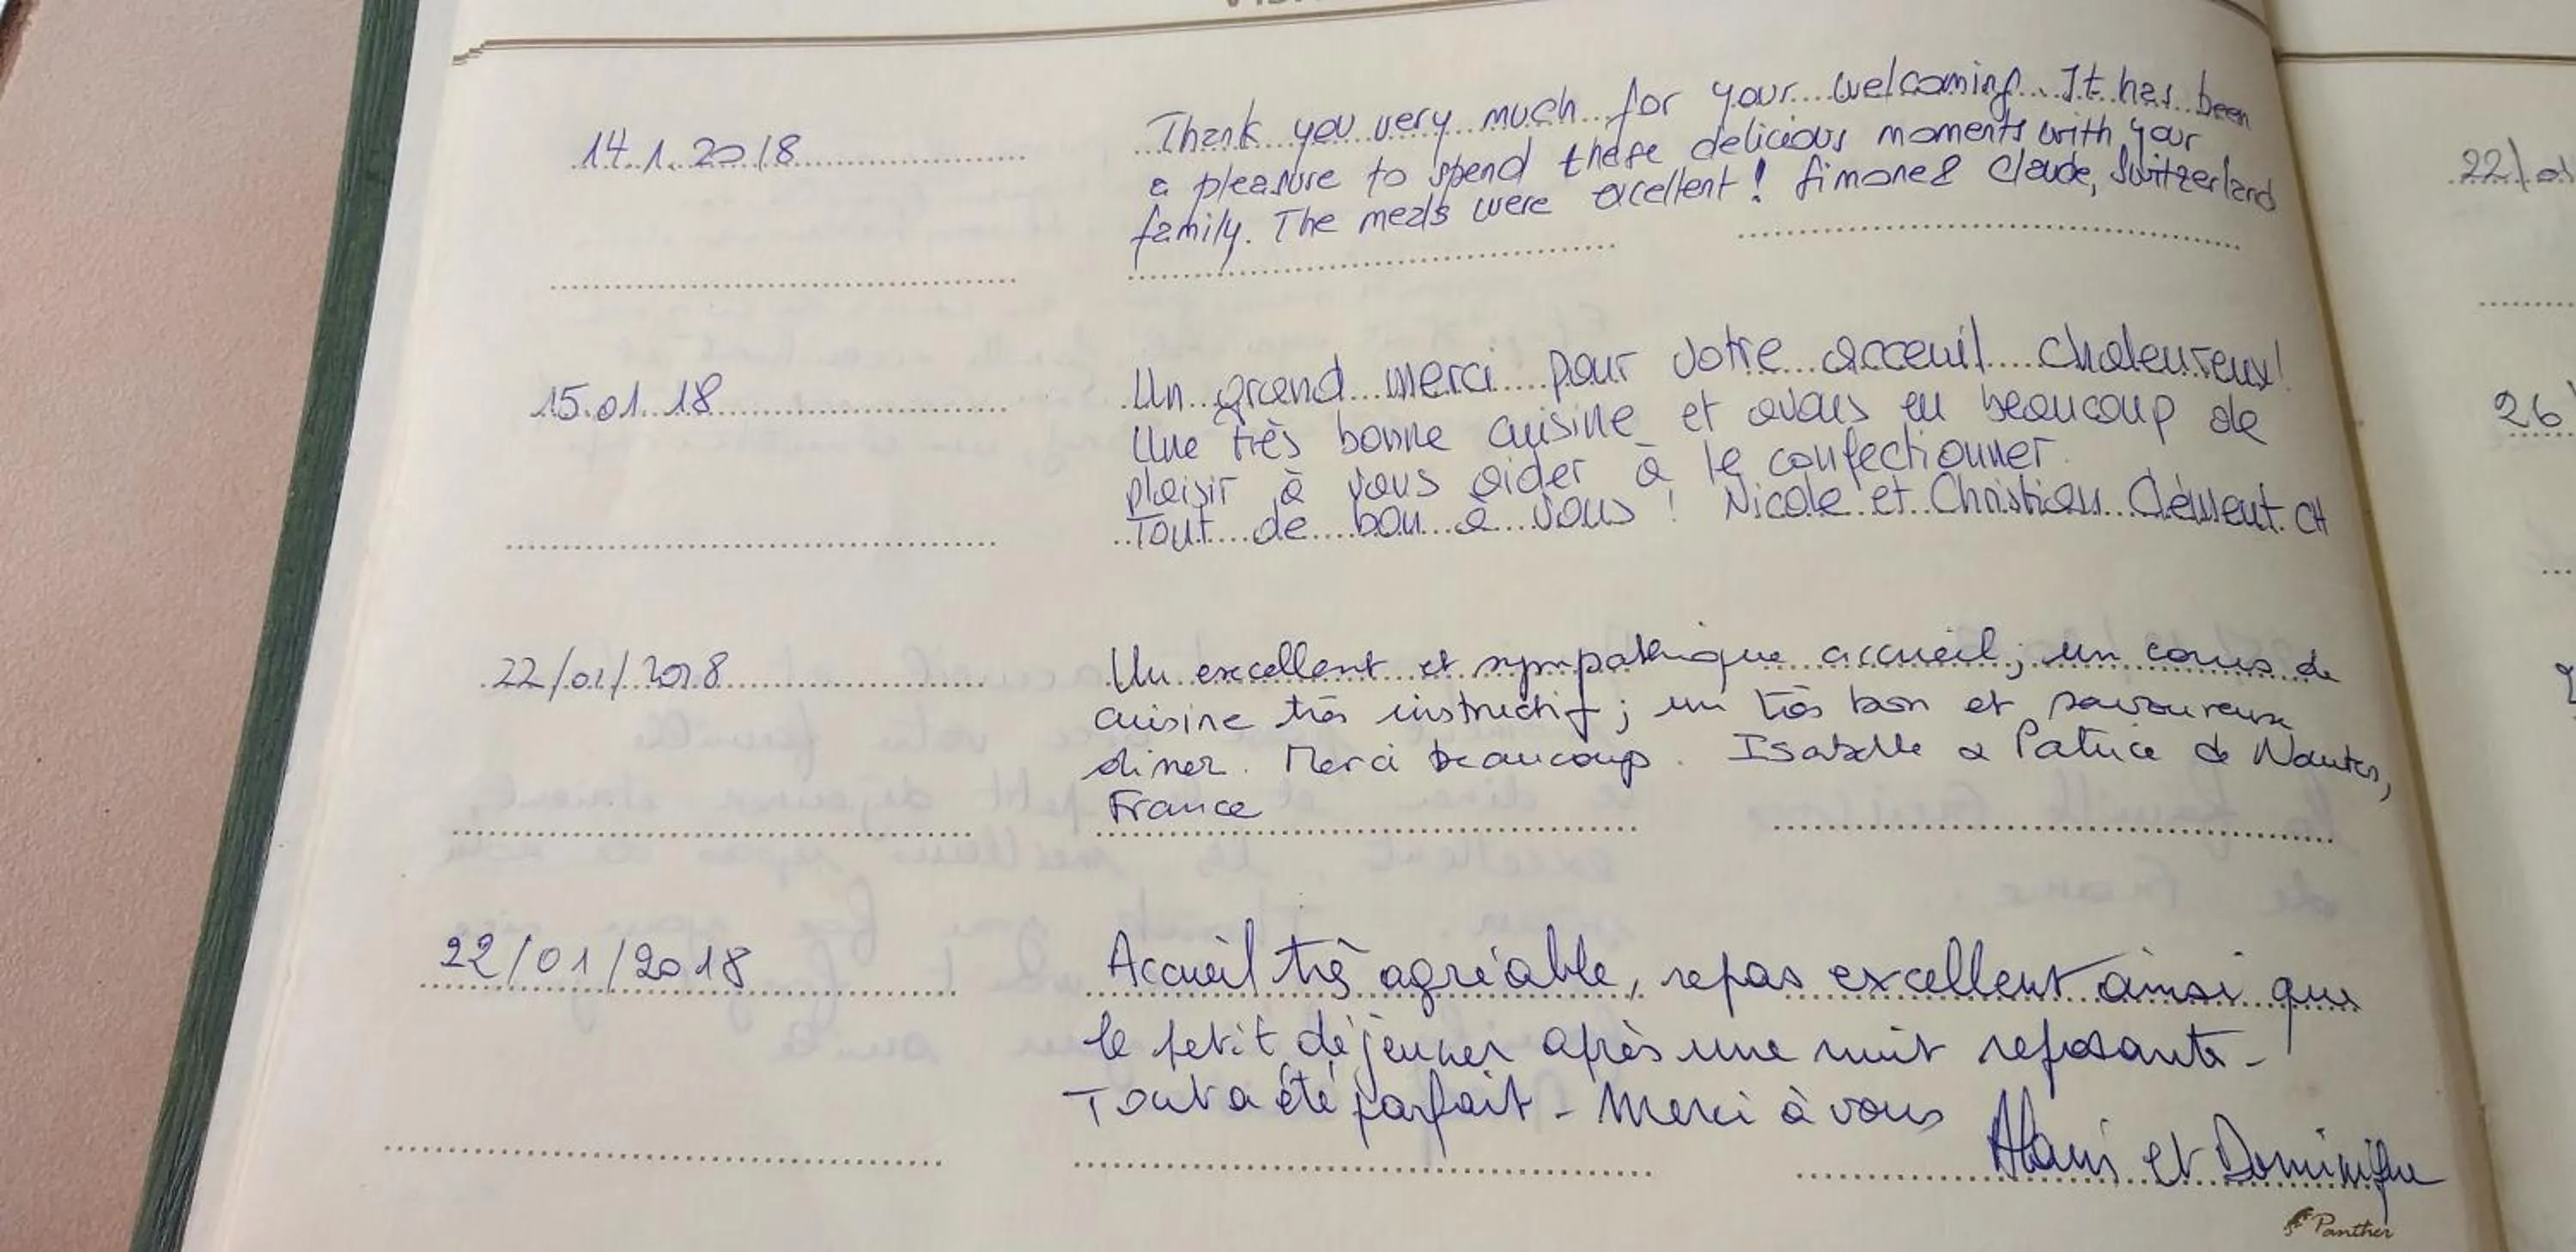 14.1.2018
Thank you very much for your welcoming. It has been
a pleasure to spend these delicious moments with your
family. The meals were excellent! Simone & Claude, Switzerland
15.01.18
Un grand merci pour votre acceuil chaleureux!
Une très bonne cuisine et avons eu beaucoup de
plaisir à vous aider à le confectionner.
Tout de bon à vous! Nicole et Christian Clément. CH
22/01/2018
Un excellent et sympathique accueil; un cours de
cuisine très instructif; un très bon et savoureux
diner. Merci beaucoup. Isabelle & Patrice de Nantes,
France
22/01/2018
Accueil très agréable, repas excellent ainsi que
le petit déjeuner après une nuit reposante -
Tout a été parfait - Merci à vous
Alain et Dominique
Panther
26